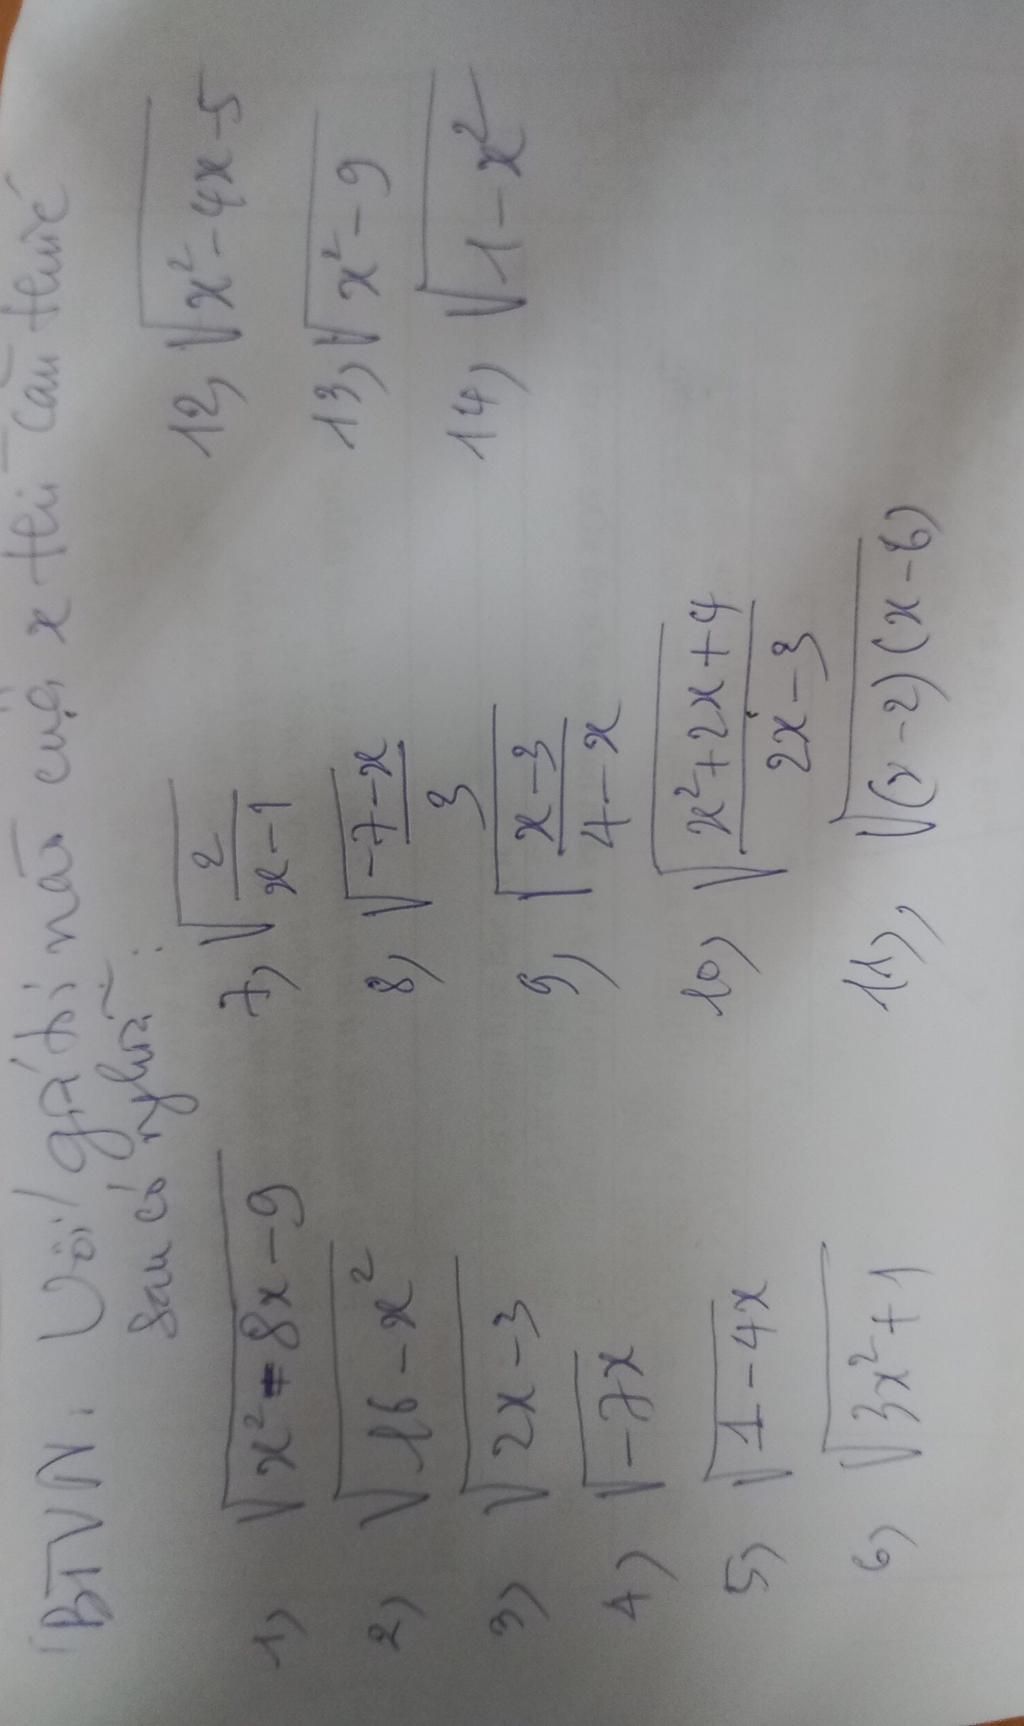 BTVN: Với giá trị nào của x thì căn thức
sau có nghĩa:
1, √(x² - 8x - 9)
2, √(16 - x²)
3, √(2x - 3)
4, √(-7x)
5, √(1 - 4x)
6, √(3x² + 1)
7, √(2/(x - 1))
8, √((-7 - x)/3)
9, √((x - 3)/(4 - x))
10, √((x² + 2x + 4)/(2x - 3))
11), √((x - 2)(x - 6))
12, √(x² - 4x - 5)
13, √(x² - 9)
14, √(1 - x²)